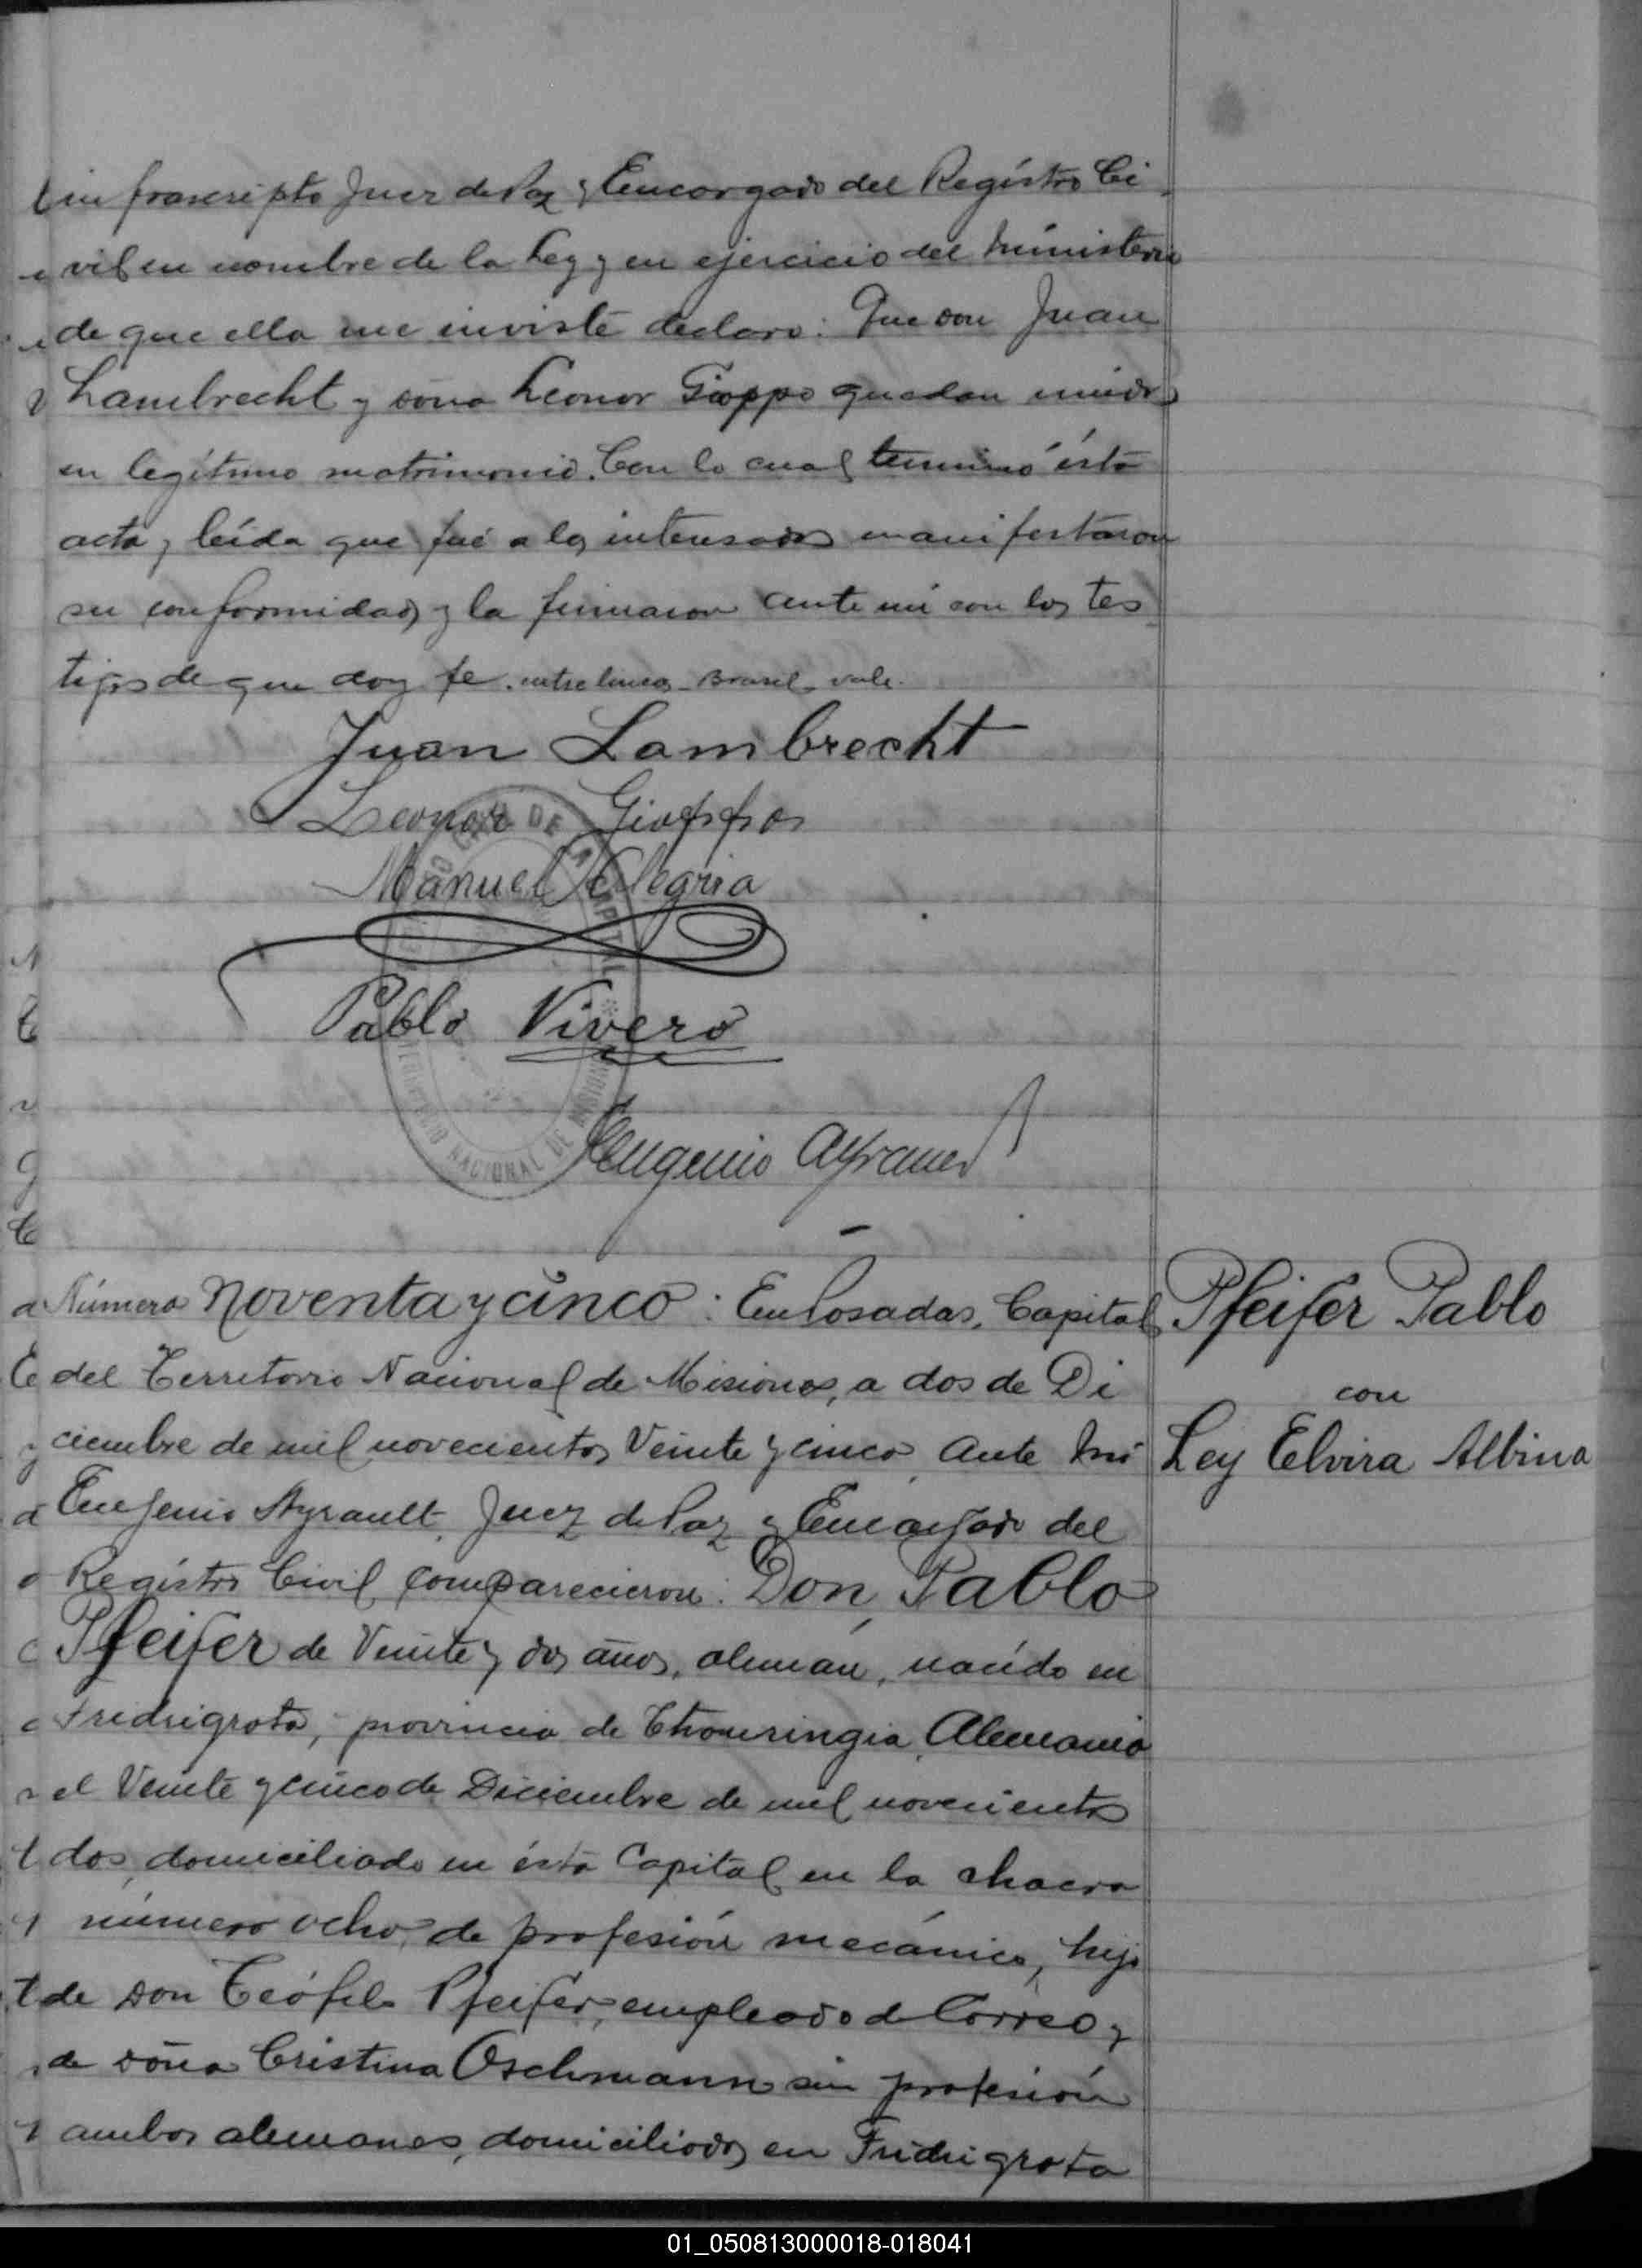 infrascripto Juez de Paz y Encargado del Registro Ci-
vil en nombre de la Ley y en ejercicio del ministerio
de que ella me inviste declaro: Que don Juan
Lambrecht y doña Leonor Gioppo quedan unidos
en legítimo matrimonio. Con lo cual terminó ésta
acta, leída que fué a los interesados manifestaron
su conformidad y la firmaron ante mi con los tes-
tigos de que doy fe. entre lineas - Brasil - vale.
Juan Lambrecht
Leonor Gioppo
Manuel Alegria
Pablo Vivero
Eugenio Ayrault
CIVIL DE LA CAPITAL
NACIONAL DE MISIONES
Número Noventa y cinco: En Posadas, Capital
del Territorio Nacional de Misiones, a dos de Di
ciembre de mil novecientos Veinte y cinco Ante mi
Eugenio Ayrault Juez de Paz y Encargado del
Registro Civil comparecieron: Don Pablo
Pfeifer de Veinte y dos años, alemán, nacido en
Fridrigrota, provincia de Thouringia Alemania
el Veinte y cinco de Diciembre de mil novecientos
dos, domiciliado en ésta Capital en la chacra
número ocho, de profesión mecánico, hijo
de don Teófilo Pfeifer, empleado de Correo y
de doña Cristina Oschmann sin profesión
ambos alemanes, domiciliados en Fridrigrota
Pfeifer Pablo
con
Ley Elvira Albina
01_050813000018-018041